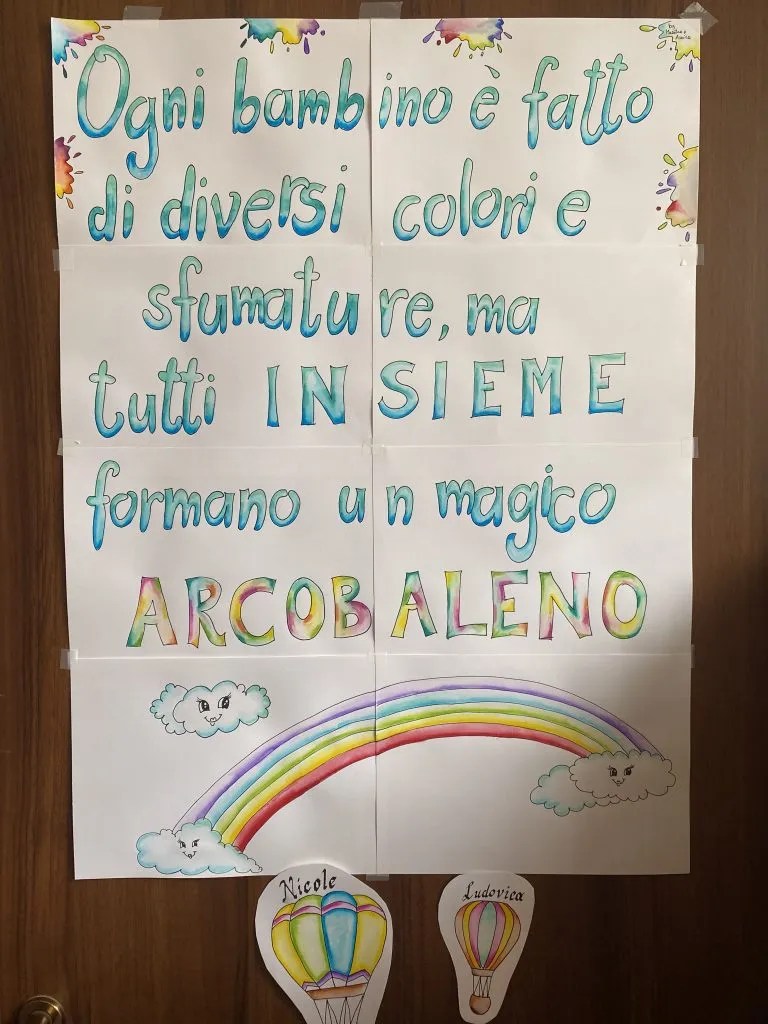 Ogni bambino è fatto
di diversi colori e
sfumature, ma
tutti INSIEME
formano un magico
ARCOBALENO
Nicole
Ludovica